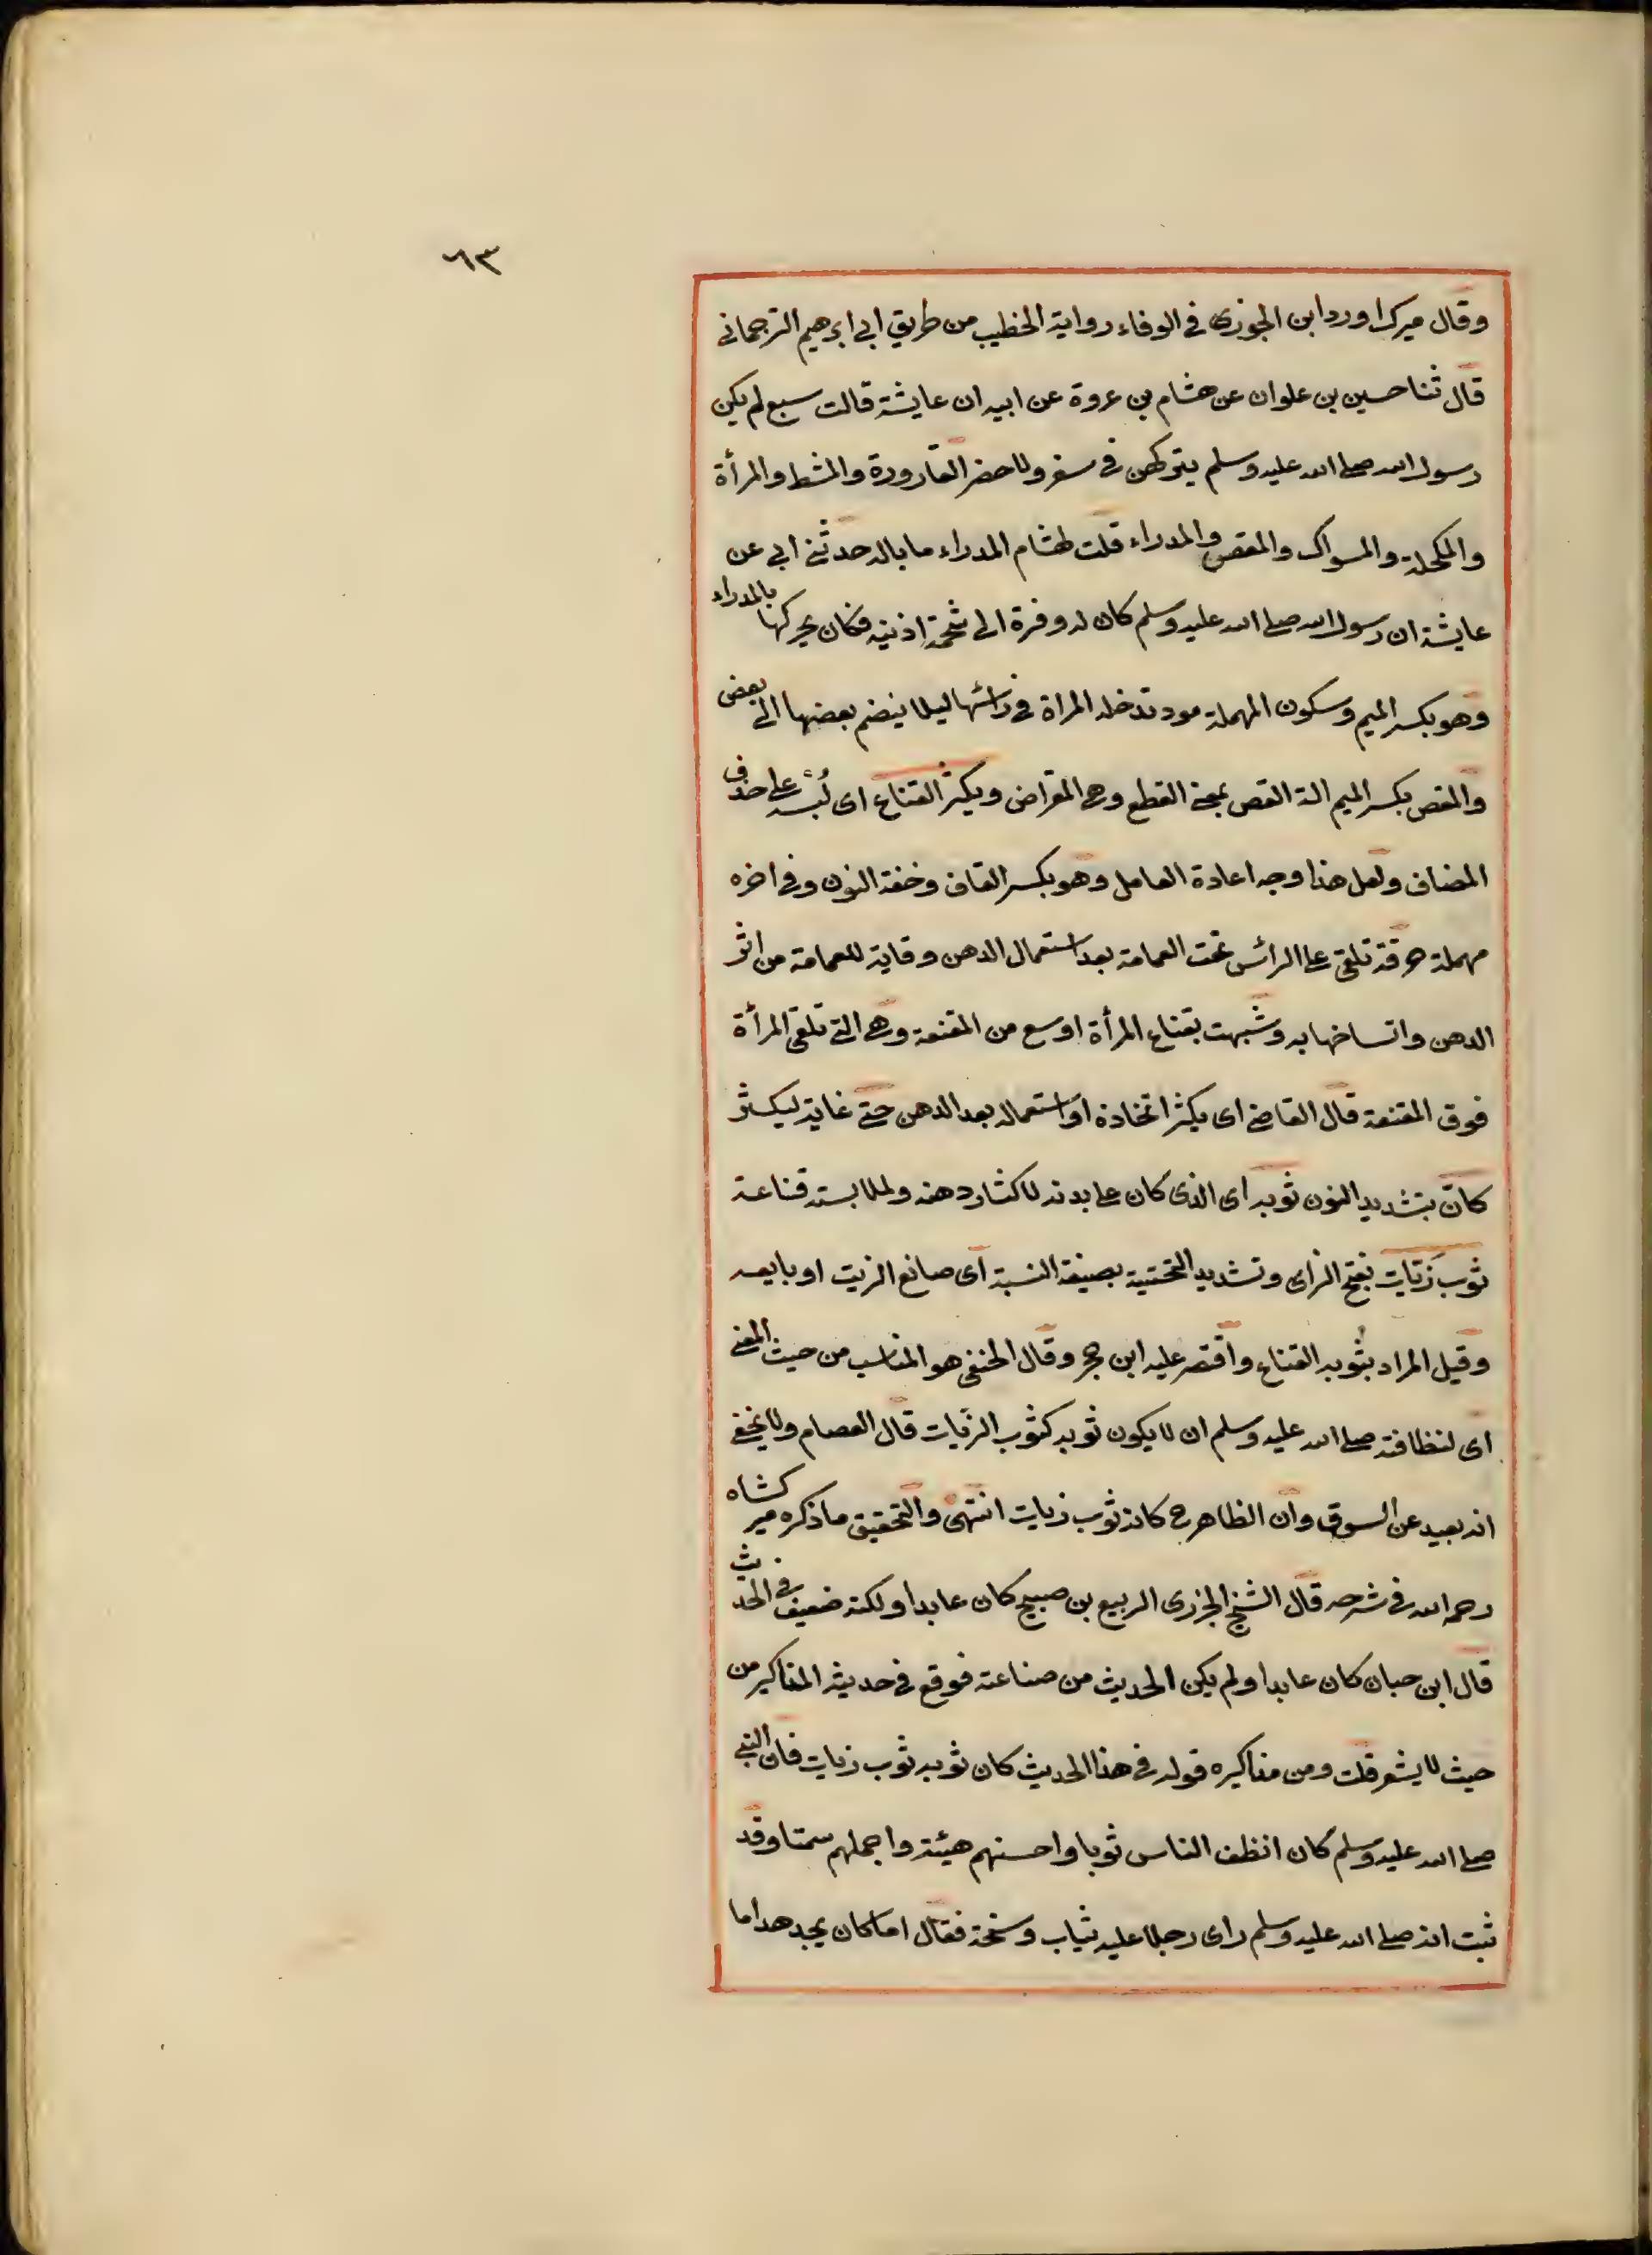 ٦٣
وقال ميرك اورد ابن الجوزى فى الوفاء رواية الخطيب من طريق ابى ابرهيم الترجمانى
قال ثنا حسين بن علوان عن هشام بن عروة عن ابيه ان عايشة قالت سبع لم يكن
رسول الله صلى الله عليه وسلم يتركهن فى سفر ولا حضر القارورة والمشط والمرأة
والمكحلة والمسواك والمقص والمدراء قلت لهشام المدراء ما باله حدثنى ابى عن
عايشة ان رسول الله صلى الله عليه وسلم كان له وفرة الى شحمة اذنيه فكان يحركها بالمدراء
وهو بكسر الميم وسكون المهملة عود تدخله المراة فى رأسها ليلا ينضم بعضها الى بعض
والمقص بكسر الميم الة القص بمعنى القطع وهى المقراض ويكثر القناع اى لبسه على حذف
المضاف ولعل هذا وجه اعادة العامل وهو بكسر القاف وخفة النون وفى اخره
مهملة خرقة تلقى على الرأس تحت العمامة بعد استعمال الدهن وقاية للعمامة من اثر
الدهن واتساخها به وشبهت بقناع المرأة اوسع من المقنعة وهى التى تلقى المرأة
فوق المقنعة قال القاضى اى يكثر اتخاذه او استعماله بعد الدهن حتى غاية ليكثر
كانّ بتشديد النون ثوبه اى الذى كان على بدنه لاكثار دهنه ولملابسته قناعه
ثوب زيّات بفتح الزاى وتشديد التحتية بصيغة النسبة اى صانع الزيت او بايعه
وقيل المراد بثوبه القناع واقتصر عليه ابن حجر وقال الحنفى هو المناسب من حيث المعنى
اى لنظافته صلى الله عليه وسلم ان لا يكون ثوبه كثوب الزيّات قال العصام ولا يخفى
انه بعيد عن السوق وان الظاهر ح كانه ثوب زيات انتهى والتحقيق ما ذكره ميركشاه
رحمه الله فى شرحه قال الشيخ الجزرى الربيع بن صبيح كان عابدا ولكنه ضعيف فى الحديث
قال ابن حبان كان عابدا ولم يكن الحديث من صناعته فوقع فى حديثه المناكير من
حيث لا يشعر قلت ومن مناكيره قوله فى هذا الحديث كان ثوبه ثوب زيات فان النبى
صلى الله عليه وسلم كان انظف الناس ثوبا واحسنهم هيئة واجملهم سمتا وقد
ثبت انه صلى الله عليه وسلم راى رجلا عليه ثياب وسخة فقال اما كان يجد هذا ما